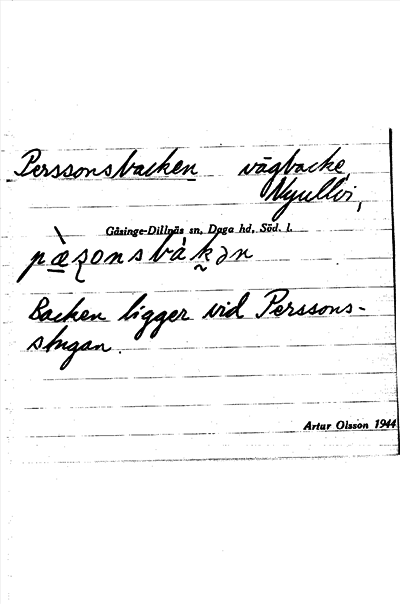 Perssonsbacken vägbacke,
Nyulloi,
Gåsinge-Dillnäs sn, Daga hd, Söd. l.
pæ̀ʂonsbàkən
Backen ligger vid Perssons-
stugan.
Artur Olsson 1944